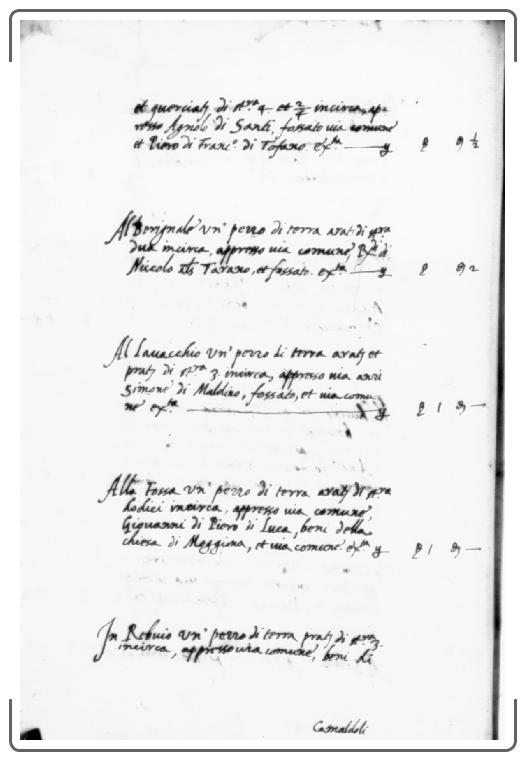 et querciatj di st.ra 4 et 2/4 incirca, ap=
resso Agnolo di Santi, fossato via comune
et Piero di Franc.o di Tofano ex.ta
Al Berignale un' pezzo di terra arat. di st.ra
dua incirca, appresso via comune, di
Niccolo Tarano, et fossato. ex.ta
Al Lavacchio un' pezzo di terra aratj et
pratj di st.ra 3. incirca, appresso via anzi
Simone di Maldino, fossato, et via comu
ne ex.ta 1 —
Alla Fossa un' pezzo di terra aratj di st.ra
dodici incirca, appresso via comune,
Giovanni di Piero di Luca, beni della
chiesa di Moggina, et via comune ex.ta 1 —
In Rebuio un' pezzo di terra pratj di st.ra 3.
incirca, appresso via comune, beni di
Camaldoli